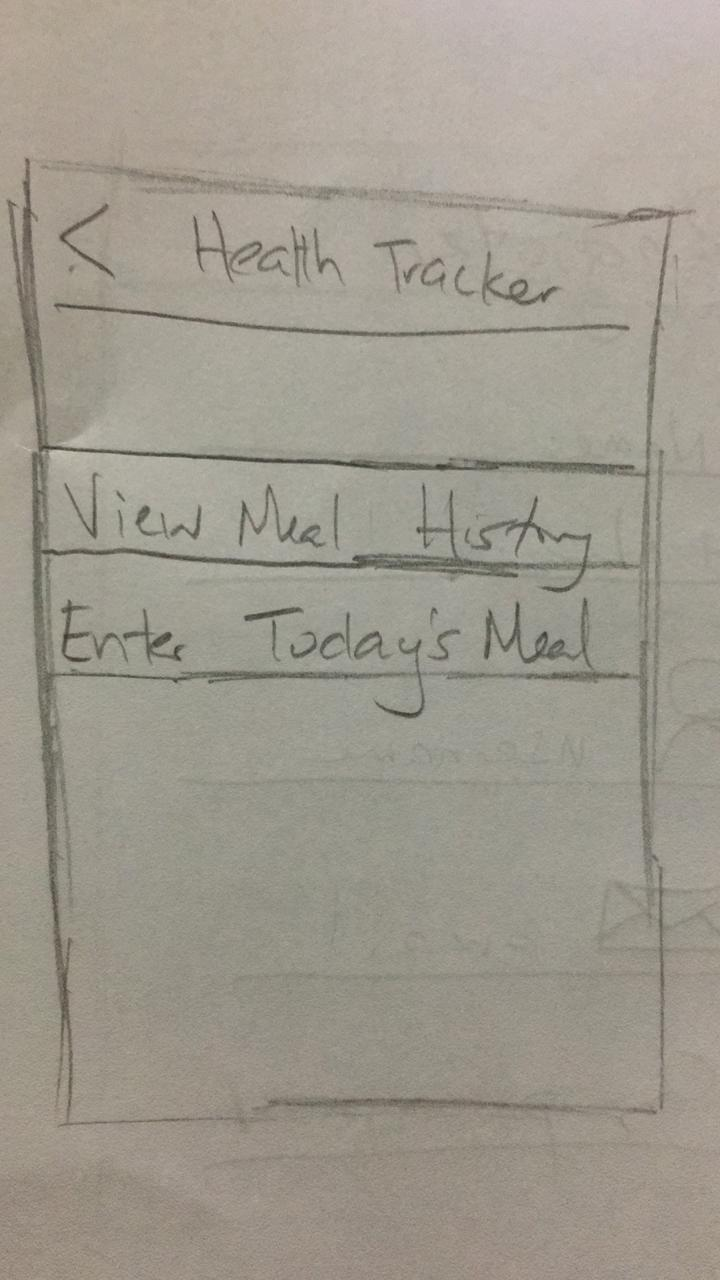 < Health Tracker
View Meal History
Enter Today's Meal